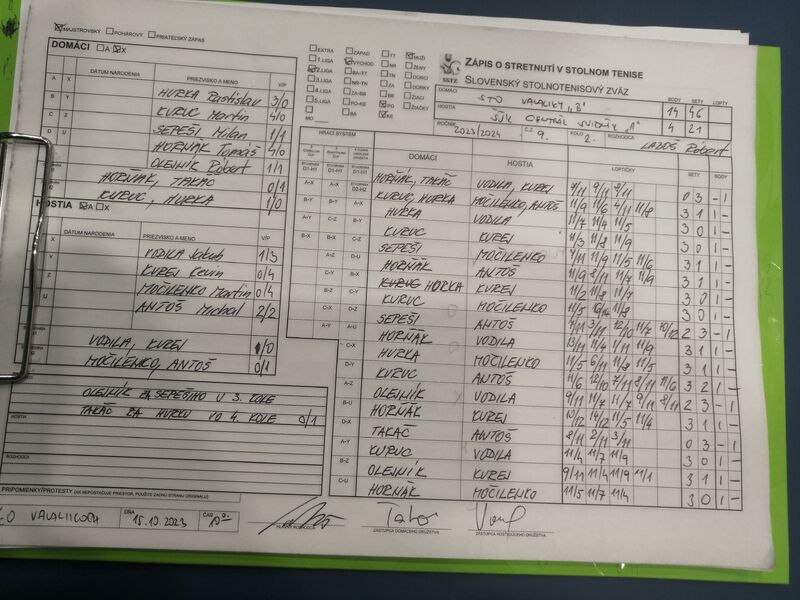 MAJSTROVSKÝ POHÁROVÝ PRIATEĽSKÝ ZÁPAS
DOMÁCI A X
DÁTUM NARODENIA PRIEZVISKO A MENO V/P
A X HURKA Rastislav 3/0
B Y KURUC Martin 4/0
C Z SEPEŠI Milan 1/1
D U HORŇÁK Tomáš 4/0
OLEJNÍK Róbert 1/1
HORŇÁK, TAKÁČ 0/1
KURUC, HURKA 1/0
HOSTIA A X
DÁTUM NARODENIA PRIEZVISKO A MENO V/P
VODILA Jakub 1/3
KUREJ Kevin 0/4
MOČILENKO Martin 0/4
ANTOŠ Michal 2/2
VODILA, KUREJ 1/0
MOČILENKO, ANTOŠ 0/1
OLEJNÍK ZA SEPEŠIHO V 3. KOLE
TAKÁČ ZA HURKU VO 4. KOLE 0/1
HOSTIA
ROZHODCA
PRIPOMIENKY/PROTESTY (AK NEPOSTAČUJE PRIESTOR, POUŽITE ZADNÚ STRANU ORIGINÁLU)
DŇA 15.10.2023 ČAS 10
EXTRA 1.LIGA 2.LIGA 3.LIGA 4.LIGA 5.LIGA MO
ZÁPAD VÝCHOD BA-TT NR-TN ZA-BB PO-KE BA
TT NR TN ZA BB PO KE
MUŽI ŽENY DORCI DORKY ŽIACI ŽIAČKY
SSTZ
ZÁPIS O STRETNUTÍ V STOLNOM TENISE
SLOVENSKÝ STOLNOTENISOVÝ ZVÄZ
BODY SETY LOPTY
DOMÁCI STO VALALIKY "B" 14 46
HOSTIA ŠUK CENTRÁL SVIDNÍK "A" 4 21
ROČNÍK 2023/2024 Č.Z. 9. KOLO 2. ROZHODCA LADOŠ Róbert
HRACÍ SYSTÉM DOMÁCI HOSTIA LOPTIČKY SETY BODY
HORŇÁK, TAKÁČ VODILA, KUREJ 9/11 9/11 0 3 - 1
KURUC, HURKA MOČILENKO, ANTOŠ 11/9 11/6 4/11 11/8 3 1 1 -
HURKA VODILA 11/7 11/4 11/5 3 0 1 -
KURUC KUREJ 11/3 11/8 11/9 3 0 1 -
SEPEŠI MOČILENKO 11/9 11/5 11/6 3 1 1 -
HORŇÁK ANTOŠ 11/9 8/11 11/7 11/9 3 1 1 -
KURUC HURKA KUREJ 11/2 11/8 11/7 3 0 1 -
KURUC MOČILENKO 11/5 11/8 3 0 1 -
SEPEŠI ANTOŠ 10/12 2 3 - 1
HORŇÁK VODILA 11/4 11/9 3 1 1 -
HURKA MOČILENKO 11/5 6/11 11/8 11/5 3 1 1 -
KURUC ANTOŠ 11/6 12/10 7/11 8/11 11/6 3 2 1 -
OLEJNÍK VODILA 9/11 11/7 11/7 9/11 8/11 2 3 - 1
HORŇÁK KUREJ 10/12 14/12 11/5 11/4 3 1 1 -
TAKÁČ ANTOŠ 8/11 2/11 3/11 0 3 - 1
KURUC VODILA 11/4 11/7 11/9 3 0 1 -
OLEJNÍK KUREJ 9/11 11/4 11/9 11/1 3 1 1 -
HORŇÁK MOČILENKO 11/5 11/7 11/4 3 0 1 -
HLAVNÝ ROZHODCA ZÁSTUPCA DOMÁCEHO DRUŽSTVA ZÁSTUPCA HOSŤUJÚCEHO DRUŽSTVA